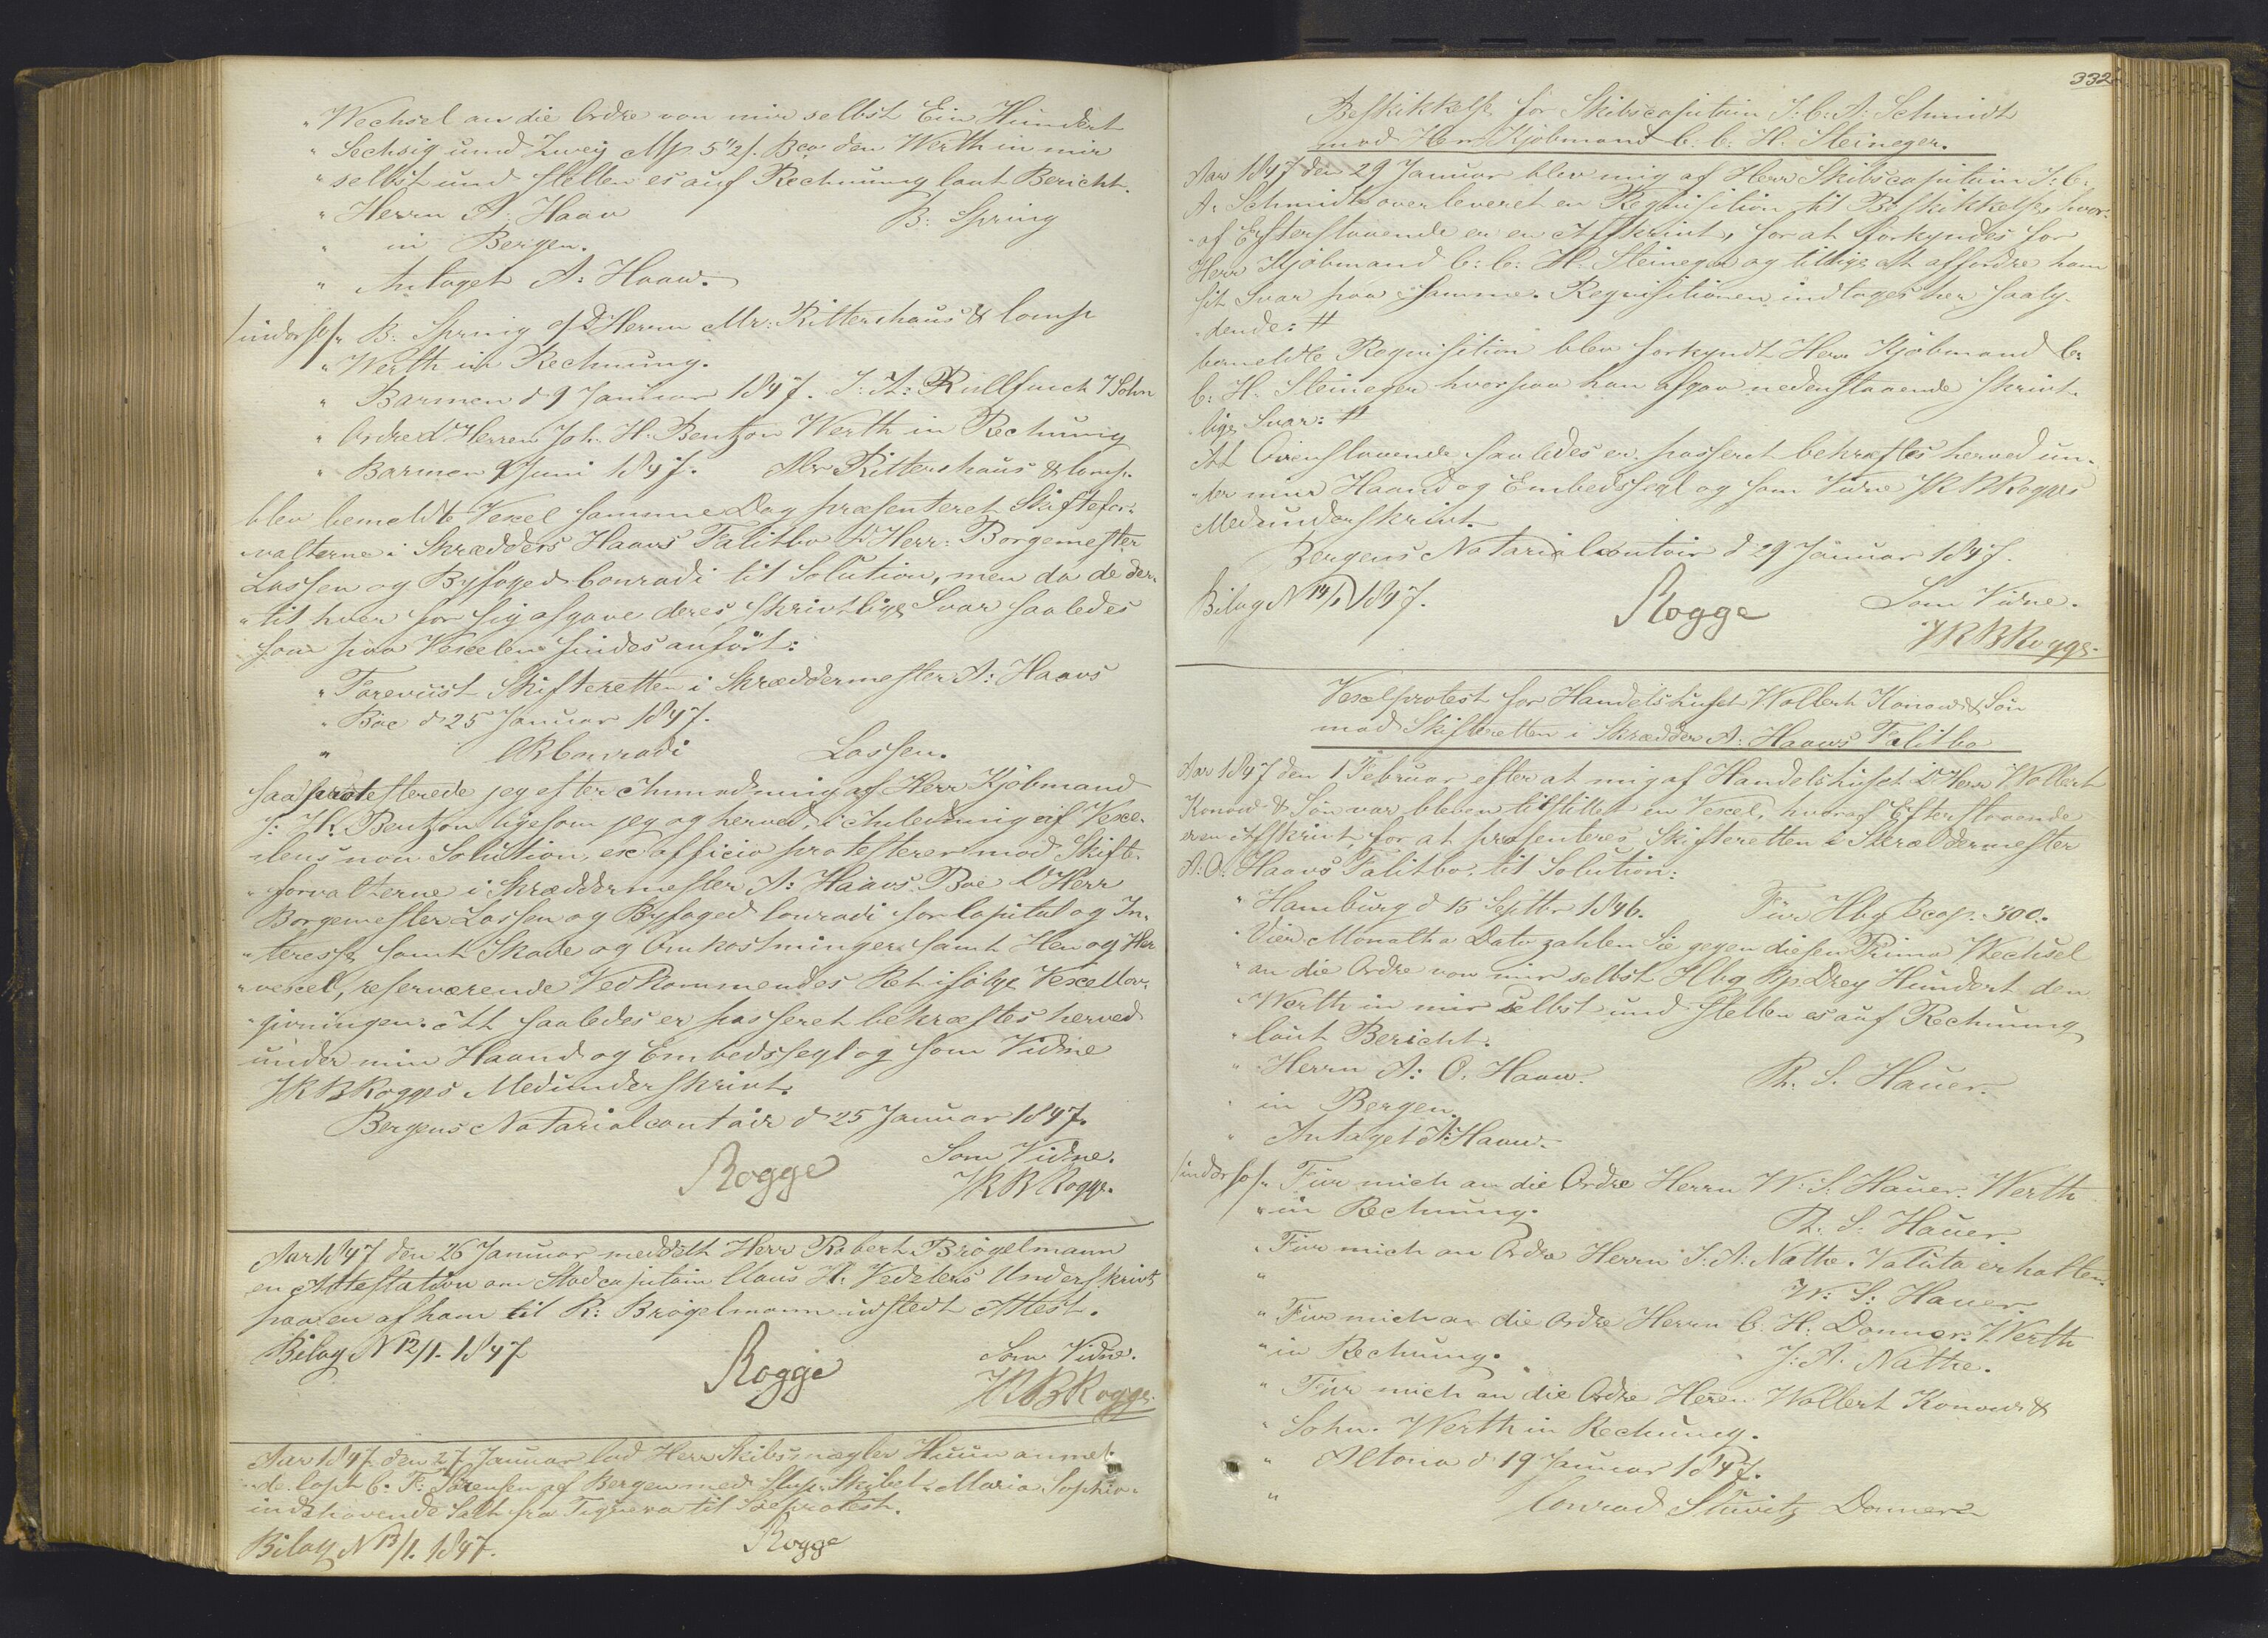 "Wechsel an die Ordre von mir selbst Ein Hundert
" Sechsig und Zwey Mk 5"2/. Bco den Werth in mir
" selbst und stellen es auf Rechnung laut Bericht.
" Herrn A. Haav B. Spring
" in Bergen.
" Antaget A: Haaw.
/indorso/" B. Spring o/d Herrn Mr: Rittershaus & Comp
" Werth in Rechnung.
" Barmen d 9 Januar 1847. J. A: Sohn
" Ordre d. Herren Joh. H. Bentzon Werth in Rechnung
" Barmen 9 Juni 1847. Mr Rittershaus & Comp.
blev bemeldte Vexel samme Dag præsenteret Skiftefor-
"valterne i Skrædders Haavs Falitbo d'Herr: Borgemester
Lassen og Byfoged Conradi til Solution, men da de der-
"til hver for sig afgave deres skrivtlige Svar saaledes
som paa Vexelen findes anført:
" Foreviist Skifteretten i Skræddermester A: Haavs
" Boe d 25 Januar 1847.
" Conradi Lassen.
saa protesterede jeg efter Anmodning af Herr Kjøbmand
J: H. Bentzon ligesom jeg og herved, i Anledning af Vexe-
lens non Solution, ex officio protesterer mod Skifte-
"forvalterne i Skræddermester A: Haavs Boe d'Herr
Borgemester Lassen og Byfoged Conradi for Capital og In-
"teresse samt Skade og Omkostninger samt Hen og Her-
"vexel, reserverende Vedkommendes Ret ifølge Vexellov-
"givningen. At saaledes er passeret bekræftes herved
under min Haand og Embedssegl og som Vidne
JRBRogges Medunderskrivt.
Bergens Notarialcontoir d 25 Januar 1847.
Rogge Som Vidne.
JRBRogge.
Aar 1847 den 26 Januar meddelt Herr Robert Brögelmann
en Attestation om Stadcapitain Claus H. Vedelers Underskrivt
paa en af ham til R: Brögelmann udstedt Attest.
Bilag N 12/1. 1847 Rogge Som Vidne.
JRBRogge.
Aar 1847 den 27 Januar lod Herr Skibsmægler Huun anmel-
"de Capt C. F. Sørensen af Bergen med Slup Skibet Maria Sophia
indehavende Salt fra til Søeprotest.
Bilag N 13/1. 1847. Rogge
332.
Beskikkelse for Skibscapitain J. C. A. Schmidt
mod Herr Kjøbmand C. C. H. Steineger.
Aar 1847 den 29 Januar blev mig af Herr Skibscapitain J: C:
A. Schmidt overleveret en Requisition til Beskikkelse, hvor-
"af Efterstaaende er en Afskrivt, for at forkyndes for
Herr Kjøbmand C: C: H. Steineger og tillige at affordre ham
sit Svar paa samme. Requisitionen indtages her saaly-
"dende: #
bemeldte Requisition blev forkyndt Herr Kjøbmand C.
C: H. Steineger hvorpaa han afgav nedenstaaende skrivt-
lige Svar: #
At Ovenstaaende saaledes er passeret bekræftes herved un-
"der min Haand og Embedssegl og som Vidne JRBRogges
Medunderskrivt.
Bergens Notarialcontoir d 29 Januar 1847.
Bilag N 14/1 1847. Rogge Som Vidne.
JRBRogge.
Vexelprotest for Handelshuset Wollert Konow & Søn
mod Skifteretten i Skrædder A: Haaws Falitbo
Aar 1847 den 1 Februar efter at mig af Handelshuset d'Herr Wollert
Konow & Søn var bleven tilstillet en Vexel, hvoraf Efterstaaende
er en Afskrivt, for at præsenteres Skifteretten i Skræddermester
A. O. Haavs Falitbo, til Solution:
" Hamburg d 15 Septbr 1846. Für Hbg Bco 300.
" Vier Monatha Dato zahlen Sie gegen diesen Prima Wechsel
" an die Ordre von mir selbst Hbg B Drey Hundert den
" Werth in mir selbst und stellen es auf Rechnung
" laut Bericht.
" Herrn A: O. Haaw. Ph. S. Hauer.
" in Bergen.
" Antaget A: Haaw.
/indorso/" Für mich an die Ordre Herrn W. S. Hauer. Werth
" in Rechnung. Ph. S. Hauer
" Für mich an Ordre Herrn J. A. Nathe. Valuta erhalten.
" W. S: Hauer.
" Für mich an die Ordre Herrn C. H. Donner. Werth
" in Rechnung. J: A. Nathe.
" Für mich an die Ordre Herrn Wollert Konow &
" Sohn. Werth in Rechnung.
" Altona d 19 Januar 1847.
" Conrad Donner